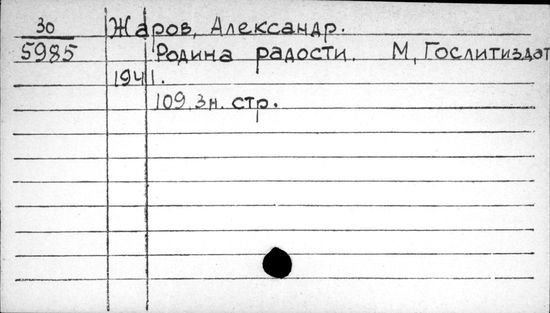 30 Жаров, Александр.
5985 Родина радости. М, Гослитиздат
1941.
109, 3н. стр.